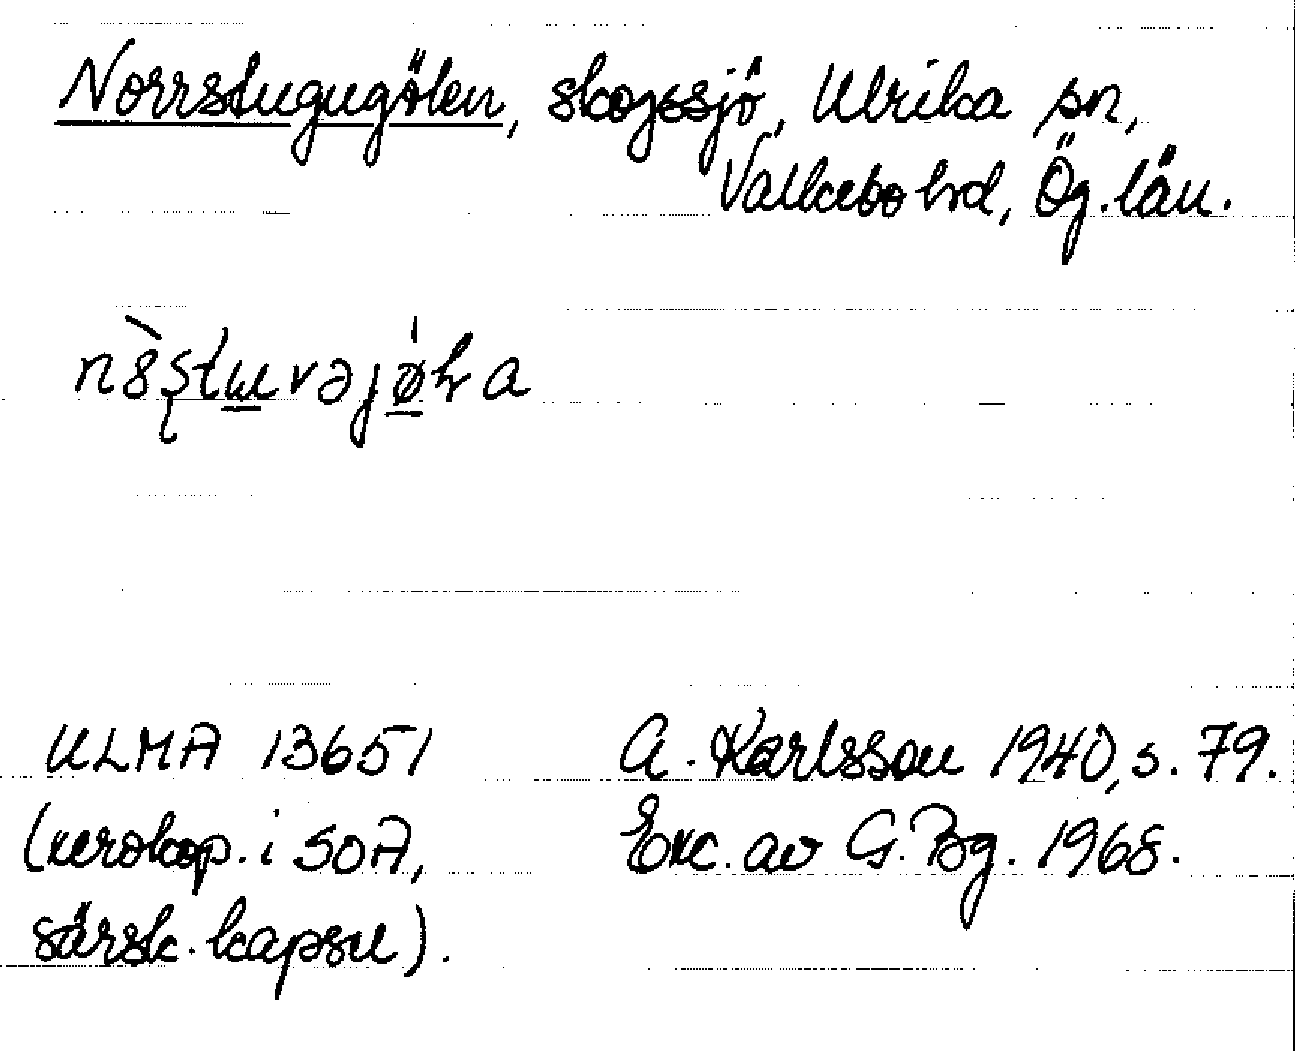 Norrstugugölen, skogssjö, Ulrika sn,
Valkebo hd, Ög. län.
ULMA 13651
(xerokop. i SOA,
särsk. kapsel).
A. Karlsson 1940, s. 79.
Exc. av G. Bg. 1968.